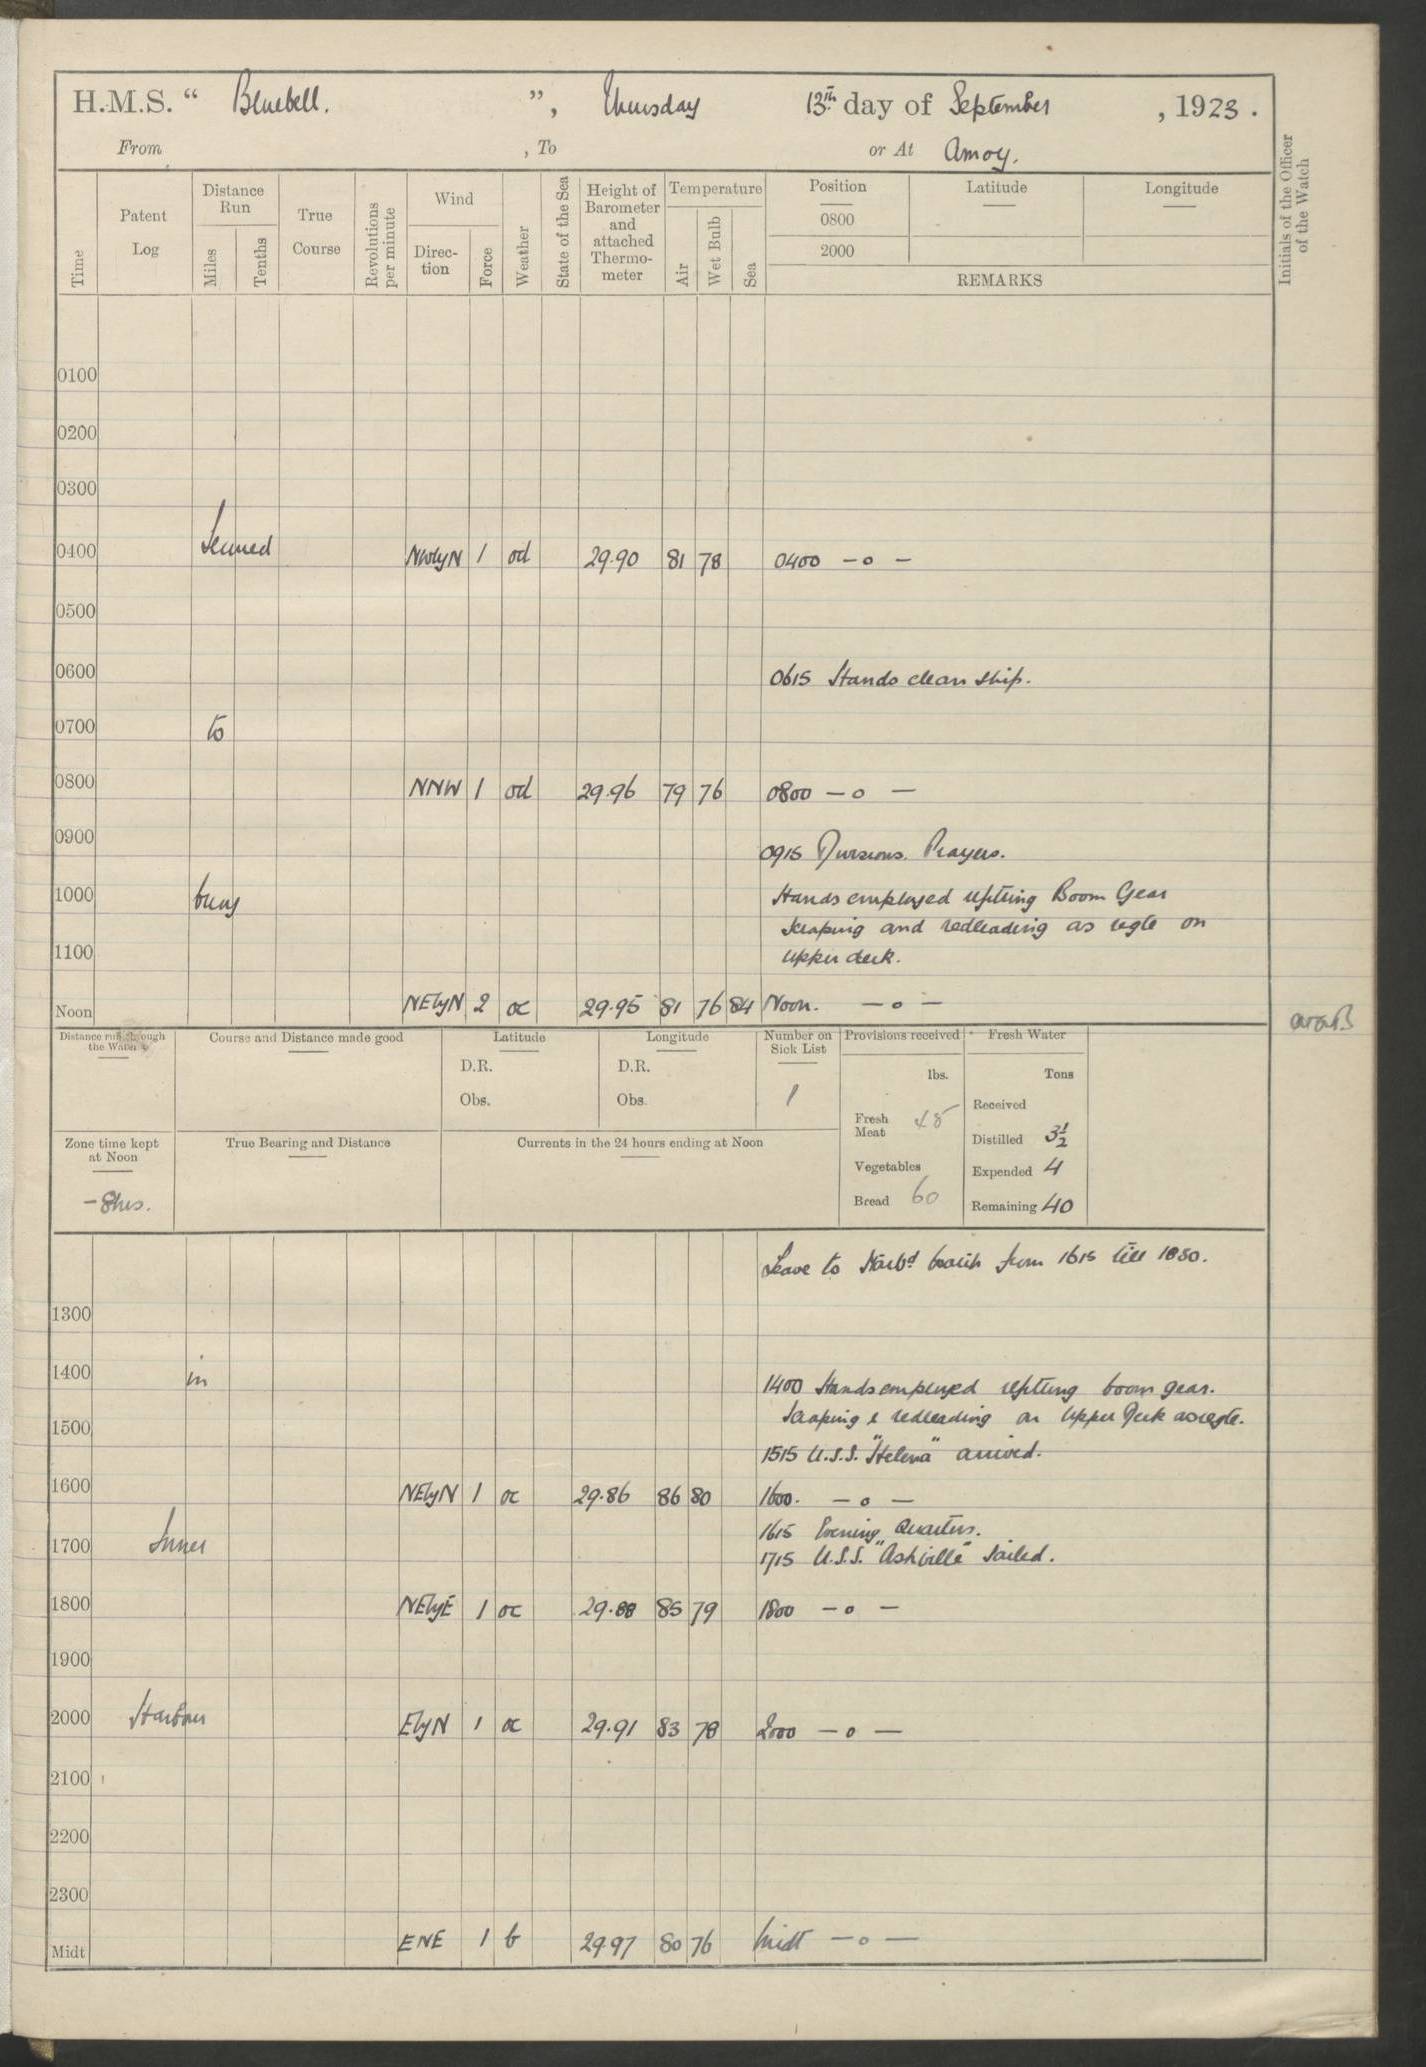 H.M.S. “ Bluebell. ”, Thursday 13th day of September , 1923.
From , To or At Amoy.
Time
Patent Log
Distance Run
Miles
Tenths
True Course
Revolutions per minute
Wind
Direction
Force
Weather
State of the Sea
Height of Barometer and attached Thermometer
Temperature
Air
Wet Bulb
Sea
Position
0800
2000
Latitude
Longitude
REMARKS
Initials of the Officer of the Watch
0100
0200
0300
0400 Secured NWbyN 1 od 29.90 81 78 0400 — o —
0500
0600 0615 Hands clean ship.
0700 to
0800 NNW 1 od 29.96 79 76 0800 — o —
0900 0915 Divisions. Prayers.
1000 buoy Hands employed refitting Boom Gear
Scraping and redleading as reqte on
1100 Upper deck.
Noon NEbyN 2 oc 29.95 81 76 84 Noon. — o —
Distance run through the Water
Course and Distance made good
Latitude
D.R.
Obs.
Longitude
D.R.
Obs.
Number on Sick List
1
Provisions received
lbs.
Fresh Meat 48
Vegetables
Bread 60
Fresh Water
Tons
Received
Distilled 3½
Expended 4
Remaining 40
Zone time kept at Noon
-8hrs.
True Bearing and Distance
Currents in the 24 hours ending at Noon
Leave to Starbd watch from 1615 till
1300
1400 in 1400 Hands employed refitting boom gear.
Scraping & redleading on Upper Deck as reqte.
1500 1515 U.S.S. "Helena" arrived.
1600 NEbyN 1 oc 29.86 86 80 1600. — o —
1615 Evening Quarters.
1700 Inner 1715 U.S.S. "Ashville" sailed.
1800 NEbyE 1 oc 29.88 85 79 1800 — o —
1900
2000 Harbour EbyN 1 oc 29.91 83 78 2000 — o —
2100
2200
2300
Midt ENE 1 b 29.97 80 76 Midt — o —